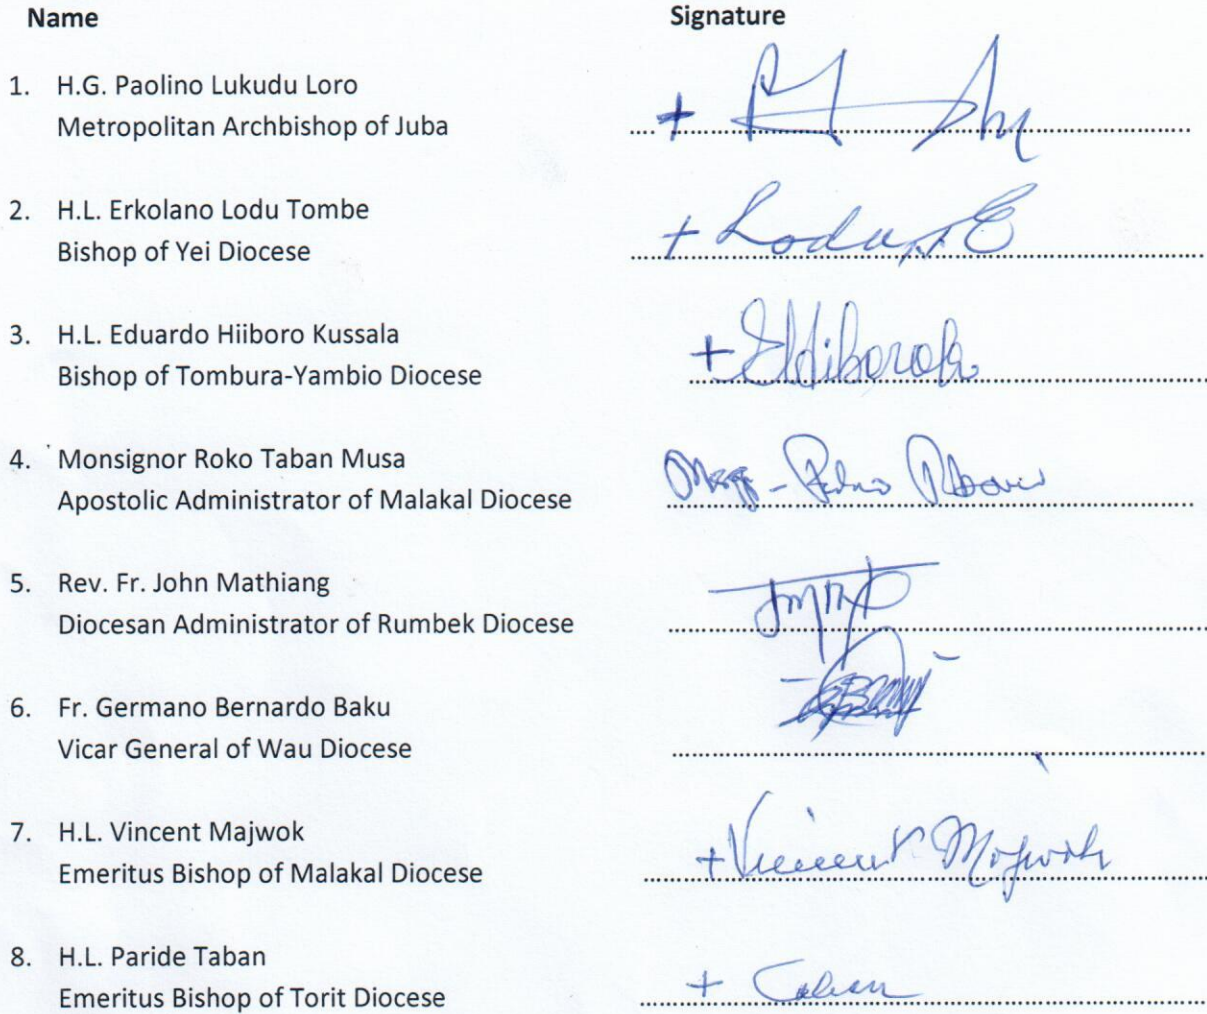 Name Signature
1. H.G. Paolino Lukudu Loro
Metropolitan Archbishop of Juba
2. H.L. Erkolano Lodu Tombe
+ Lodu
Bishop of Yei Diocese
3. H.L. Eduardo Hiiboro Kussala
Bishop of Tombura-Yambio Diocese
4. Monsignor Roko Taban Musa
Apostolic Administrator of Malakal Diocese
5. Rev. Fr. John Mathiang
Diocesan Administrator of Rumbek Diocese
6. Fr. Germano Bernardo Baku
Vicar General of Wau Diocese
7. H.L. Vincent Majwok
+ Vincent Majwok
Emeritus Bishop of Malakal Diocese
8. H.L. Paride Taban
+ Taban
Emeritus Bishop of Torit Diocese